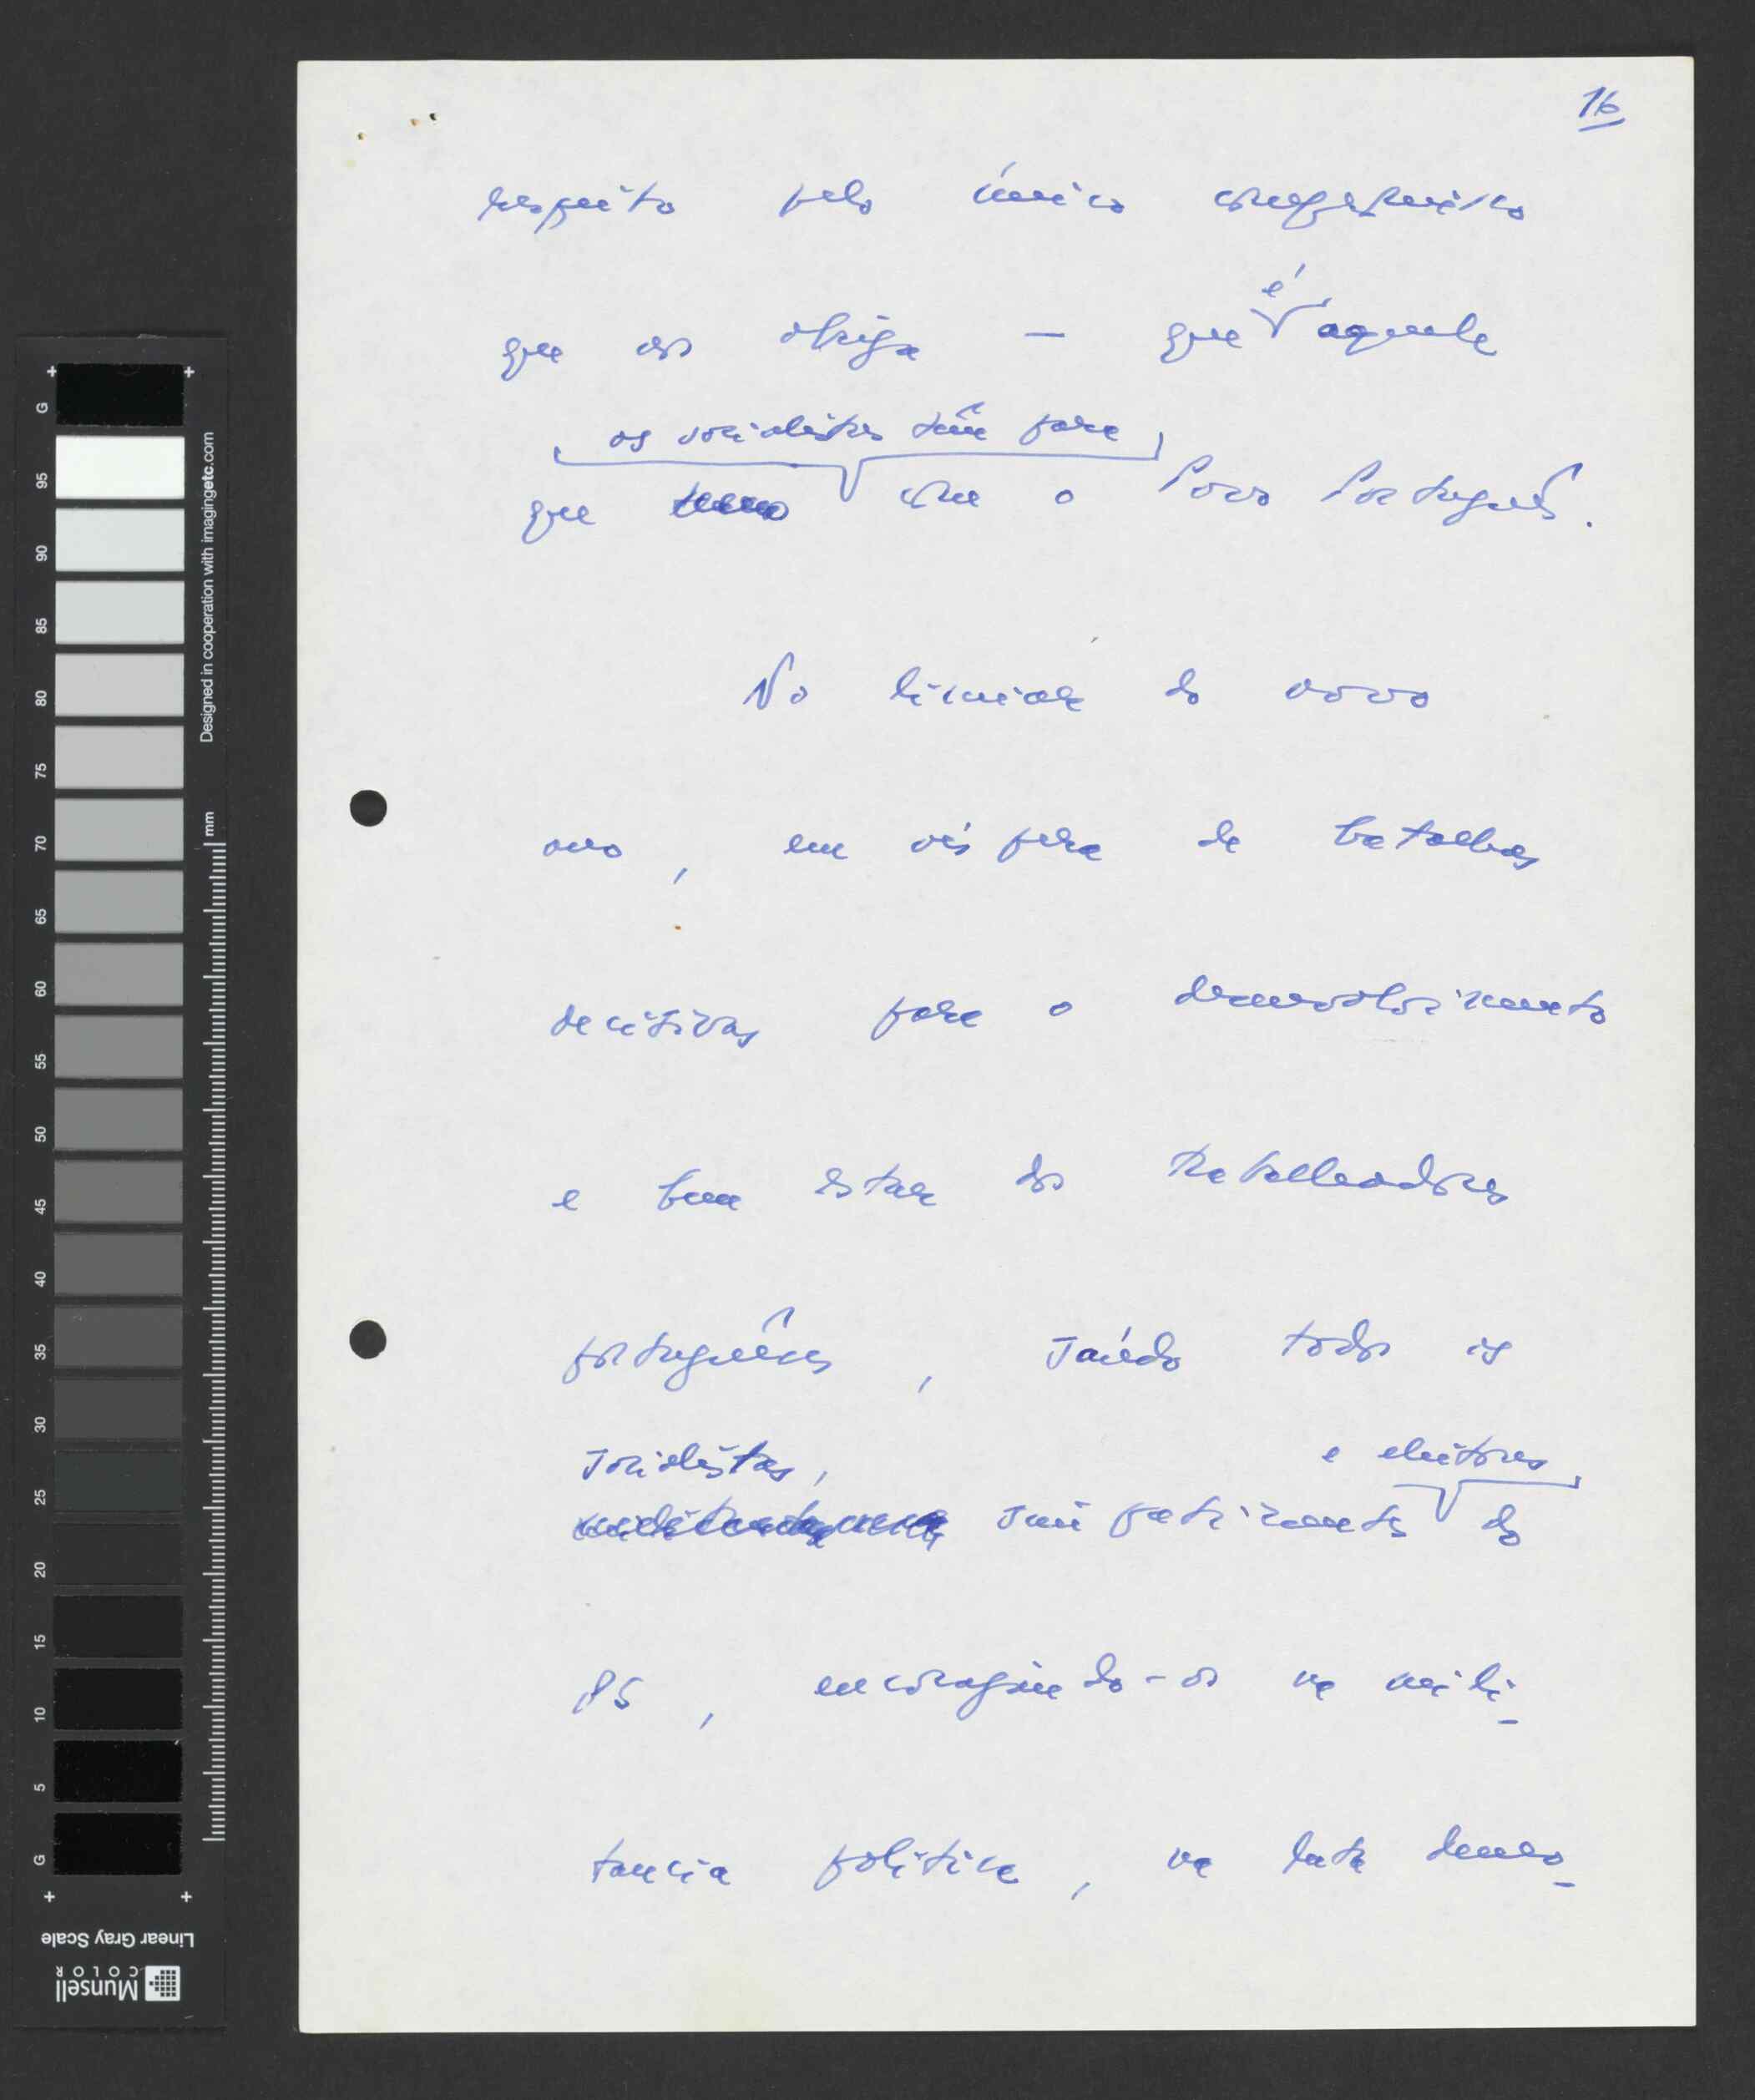 16
respeito pelo único compromisso
que os obriga — que é aquele
que os socialistas têm para com o Povo Português.
No limiar do novo
ano, em véspera de batalhas
decisivas para o desenvolvimento
e bem estar dos trabalhadores
portuguêses, saúdo todos os
socialistas, simpatizantes e eleitores do
PS, encorajando-os na mili-
tancia politica, na luta demo-
Designed in cooperation with imagingetc.com
mm
G
95
90
85
80
75
70
65
60
55
50
45
40
35
30
25
20
15
10
5
G
Linear Gray Scale
Munsell
COLOR